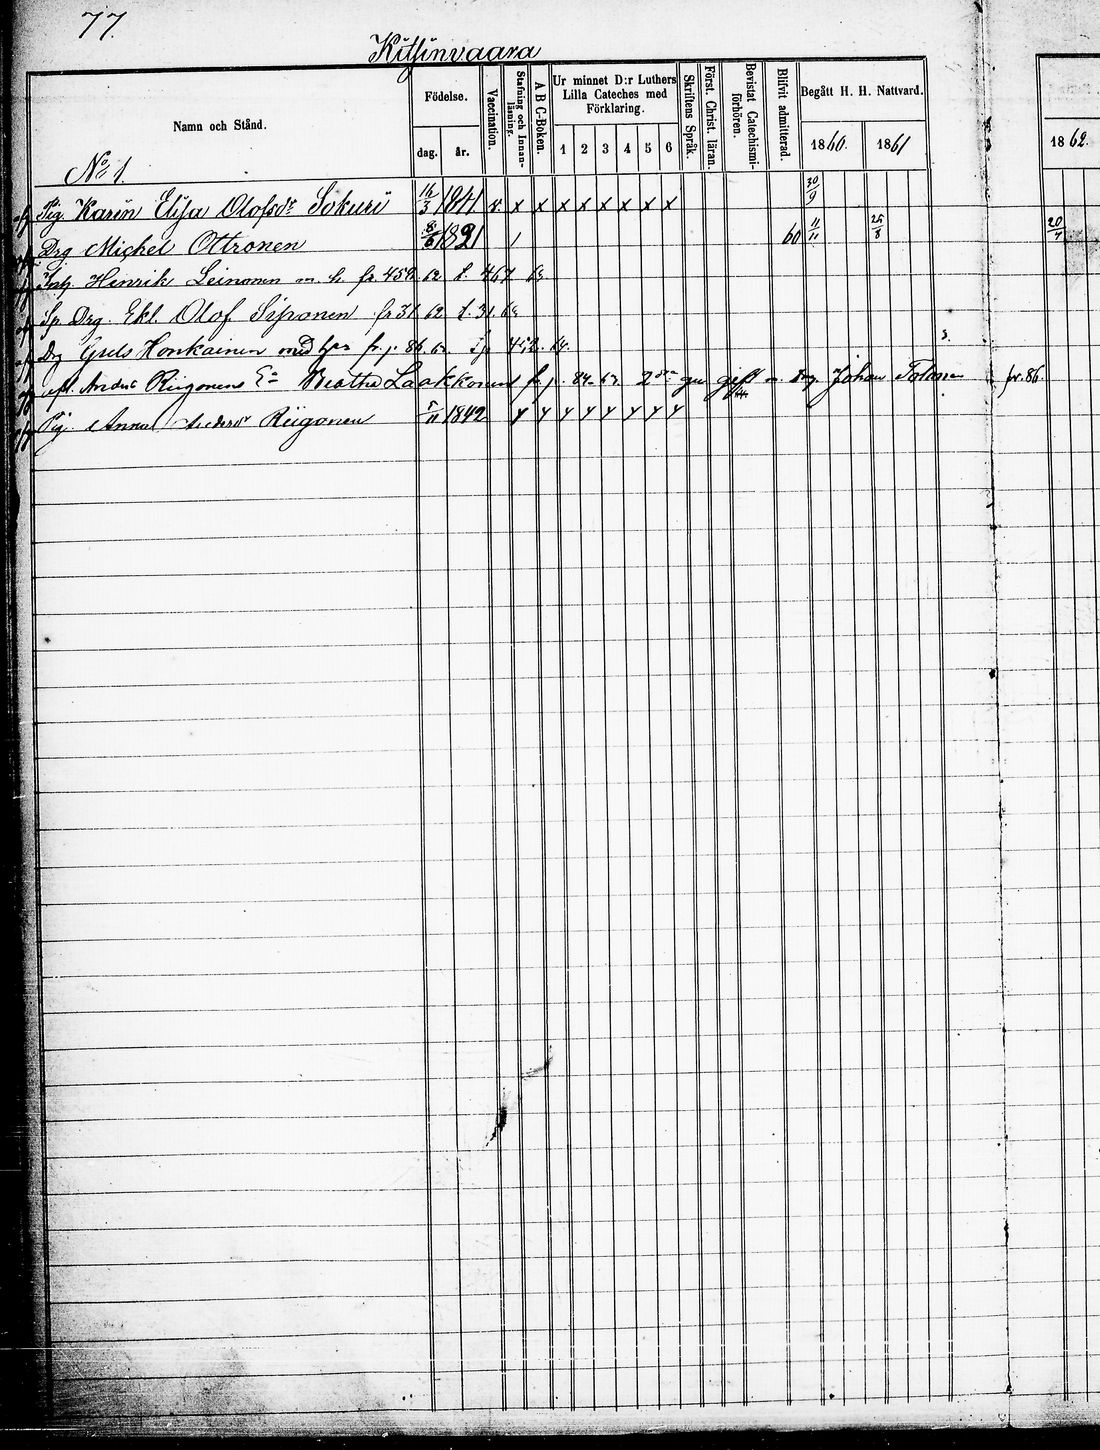 77.
Kitsinvaara
Namn och Stånd.
Födelse.
dag. år.
Vaccination.
Stafning och Innanläsning.
A B C-Boken.
Ur minnet D:r Luthers Lilla Cateches med Förklaring.
1 2 3 4 5 6
Skriftens Språk.
Först. Christ. läran.
Bevistat Catechismiförhören.
Blifvit admitterad.
Begått H. H. Nattvard.
1860. 1861
1862.
No 1.
Pig. Karin Elisa Olofsdr Sokuri 16/3 1841 x x x x x x x x x 30/9
Drg Michel Ottronen 8/6 1821 / 60 11/11 25/8 20/7
Inh. Henrik Leinonen m. h. fr. 459. 62 t. 467
Sp. Drg. Ekl. Olof Siponen fr 31 62 t. 31. 63
Drg Gsels Honkainen med fr. p. 86. 64.
Anders Riigonens Ea Beatha Laakkonen fr p. 84. 2dra gn gift m Drg. Johan Tolonen fr. 86
Pig. Anna Andersdr Riigonen 5/11 1842 x x x x x x x x